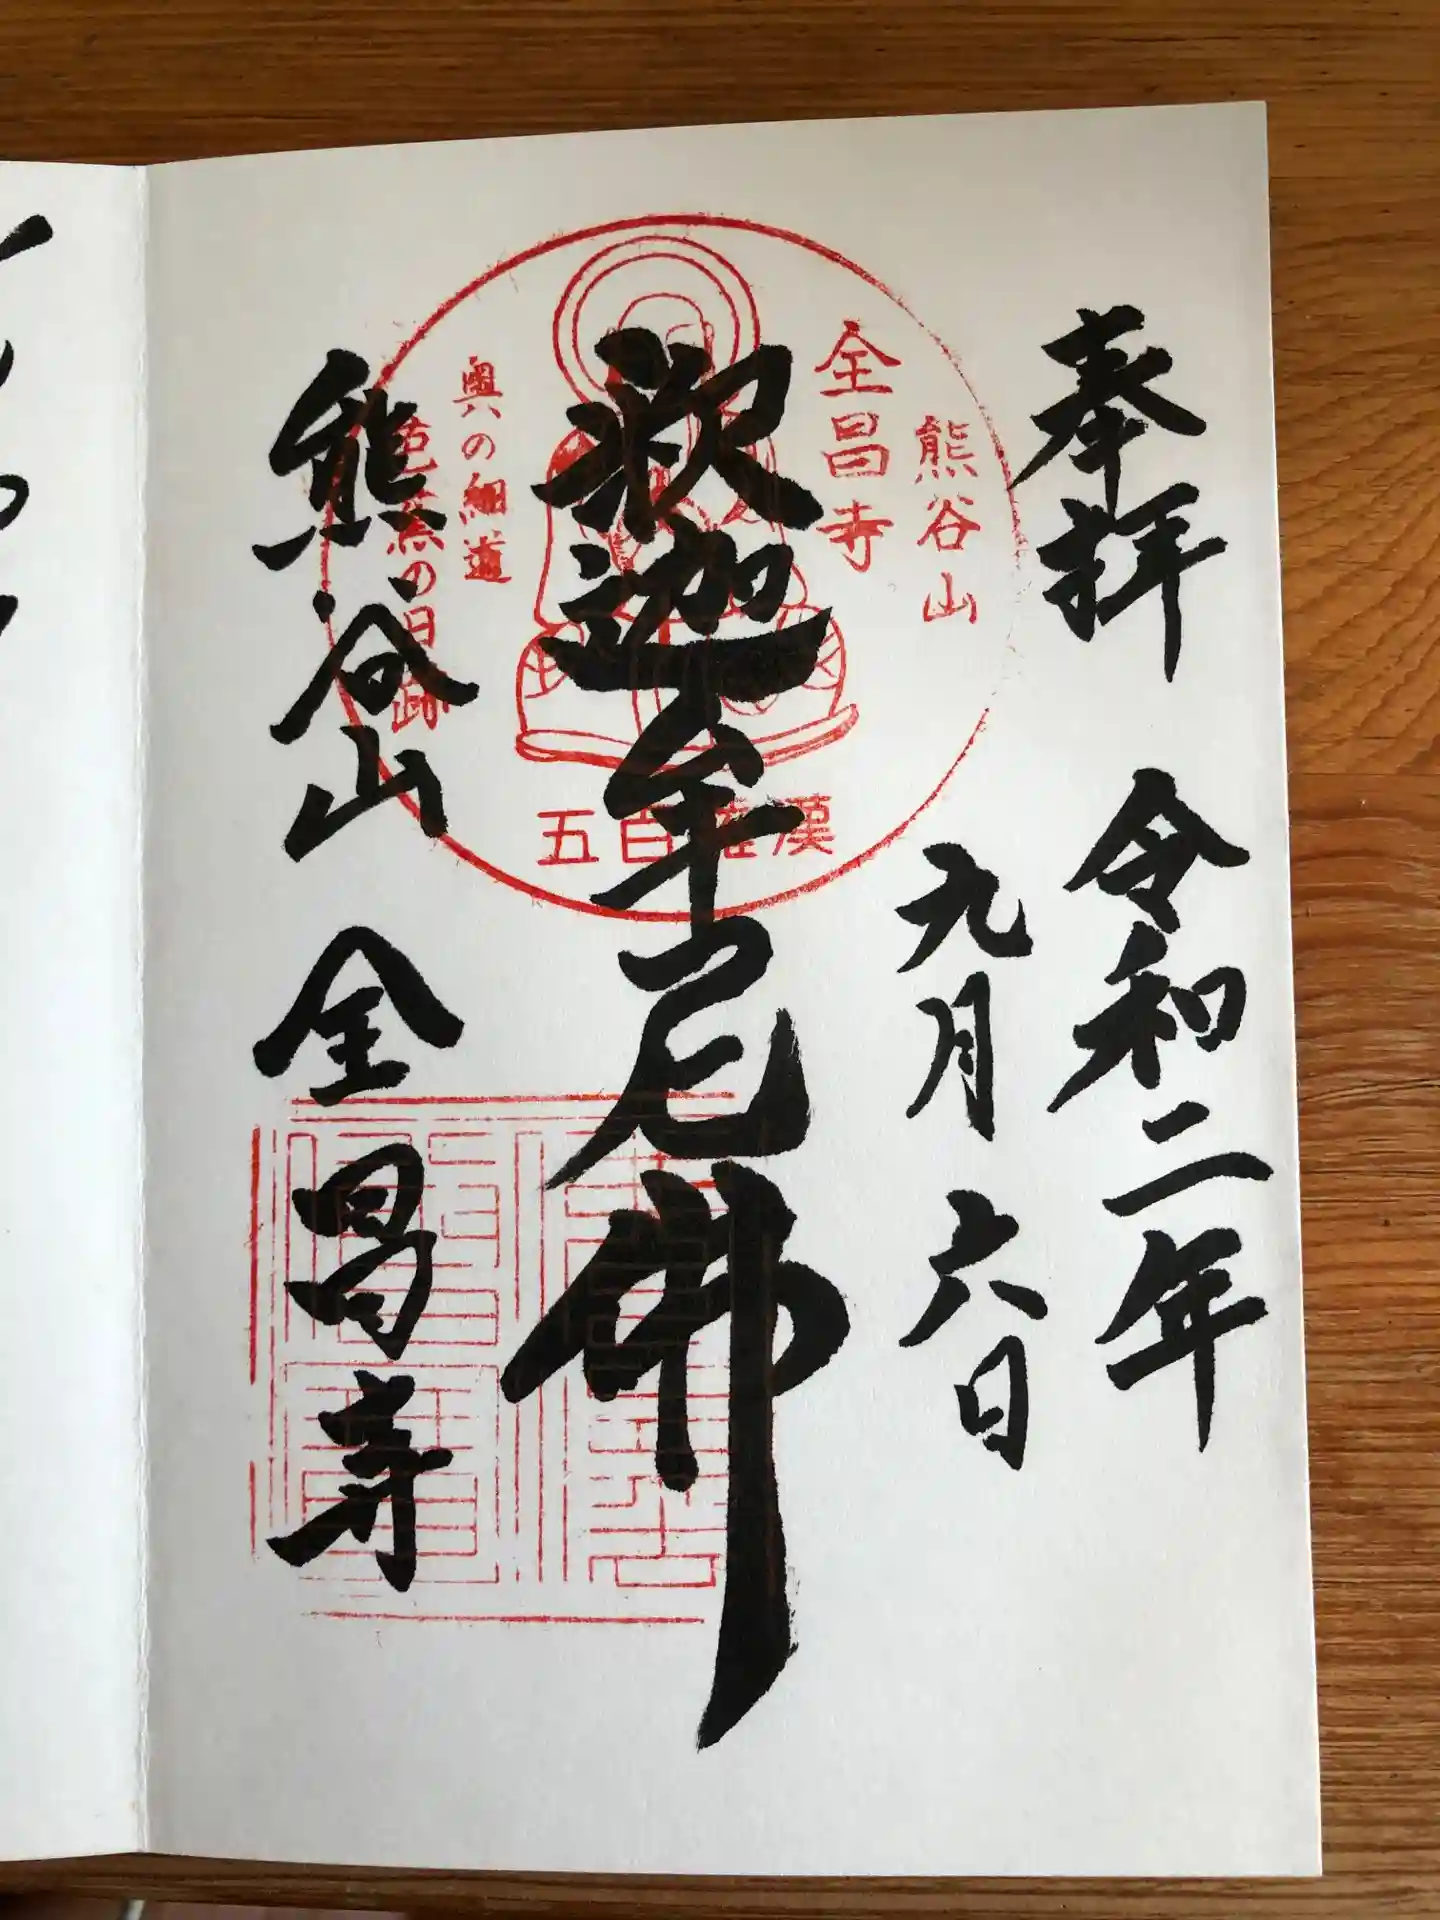 奉拝
令和二年
九月六日
釈迦牟尼佛
熊谷山 全昌寺
熊谷山
全昌寺
奥の細道
芭蕉の旧跡
五百羅漢